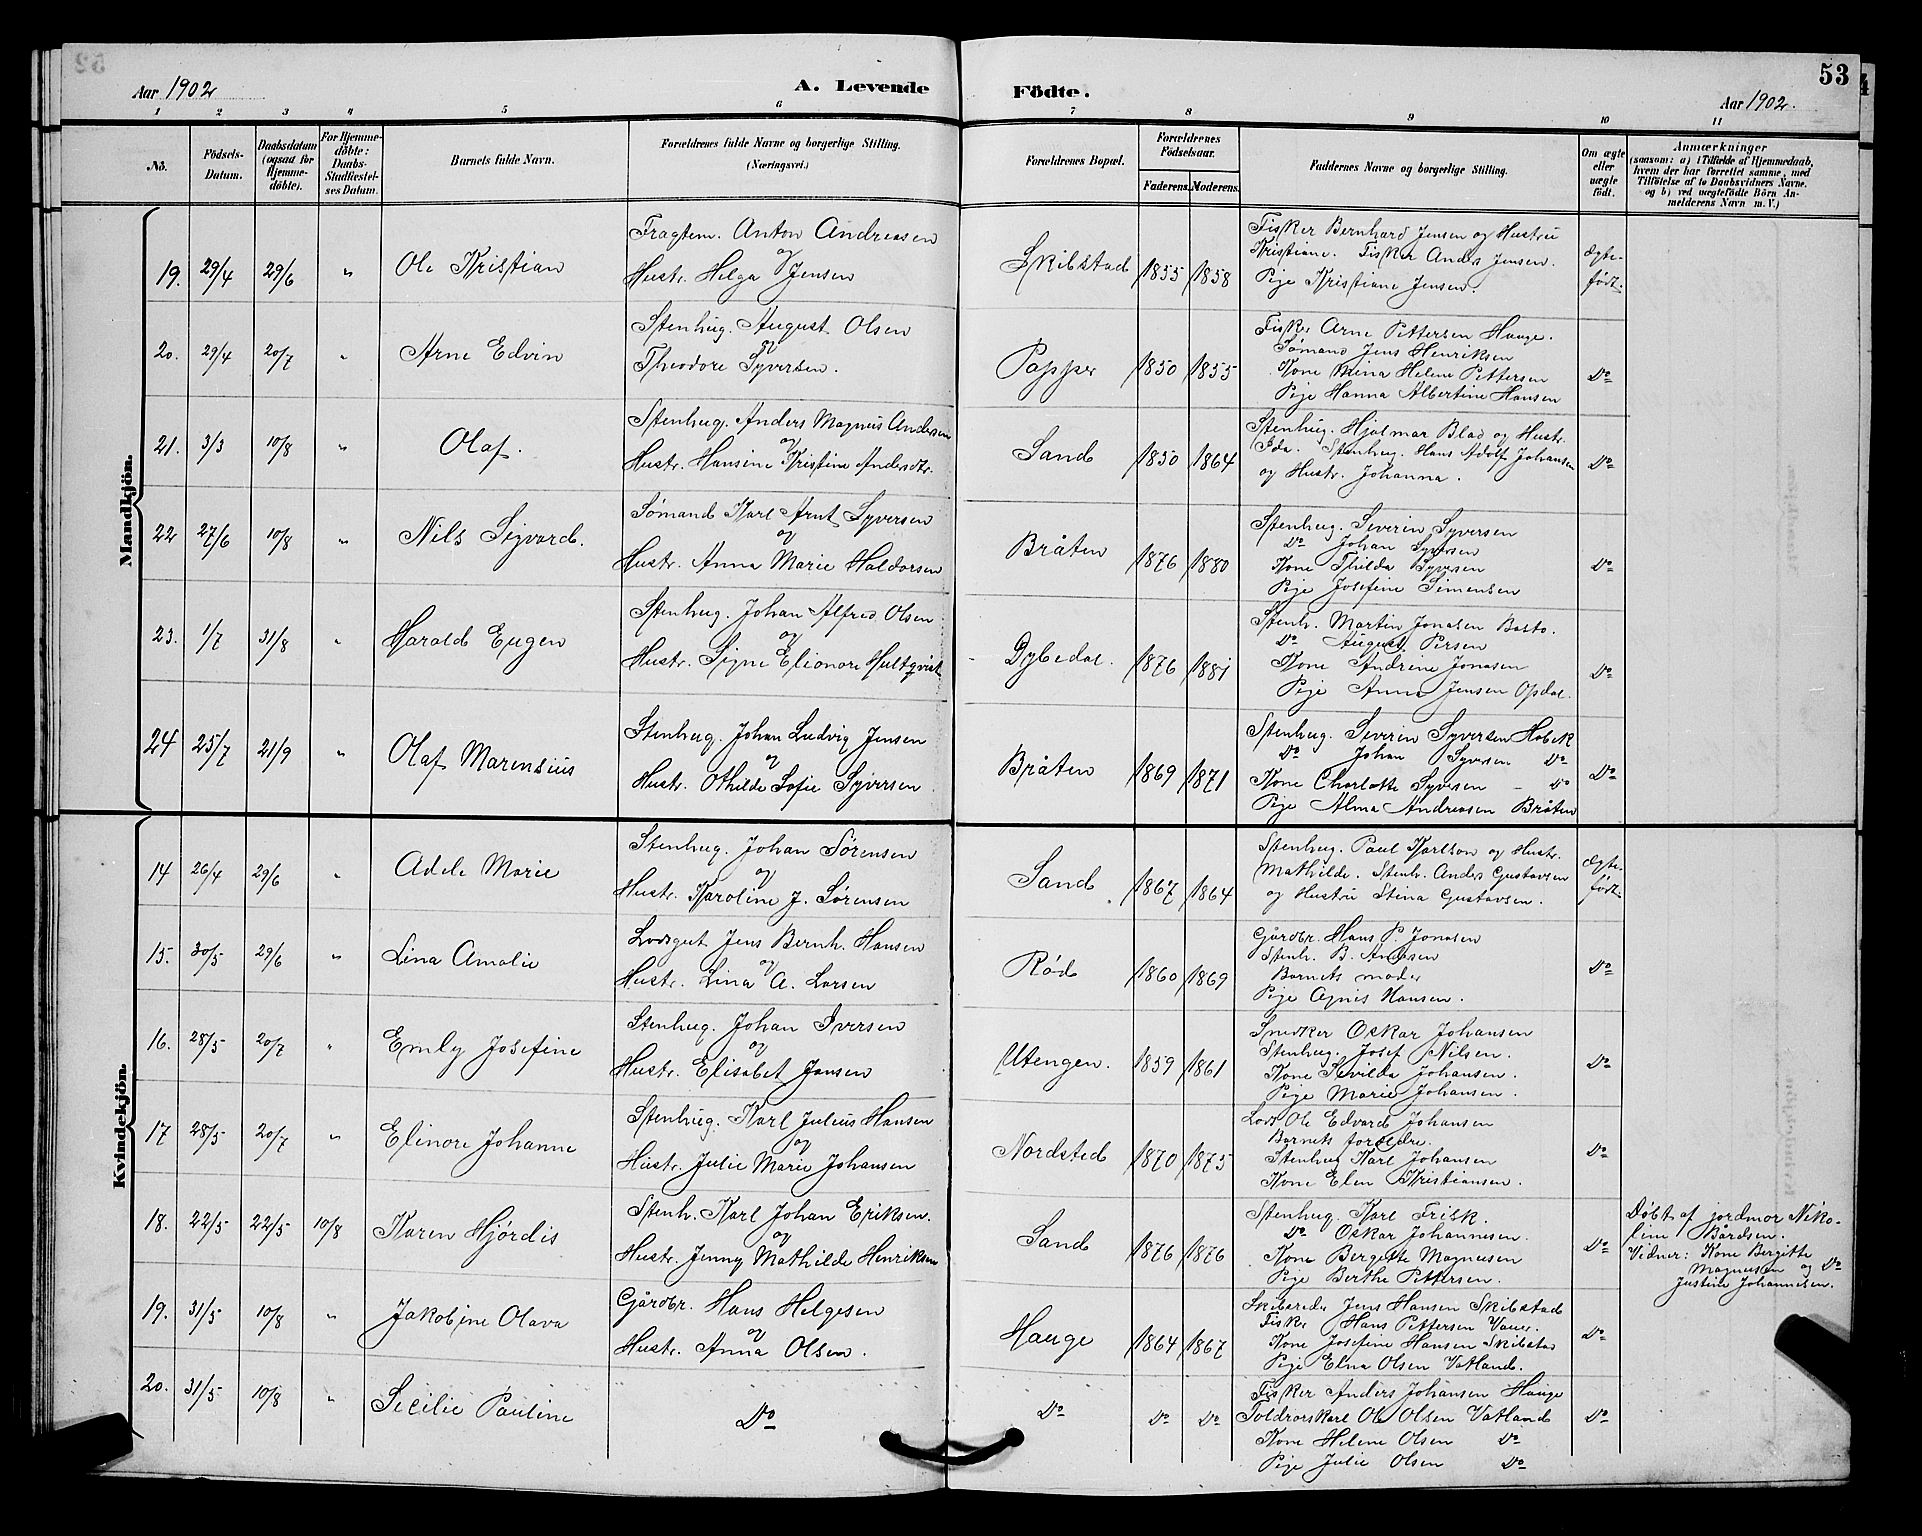 53
Aar 1902
A. Levende Födte.
Aar 1902.
1 2 3 4 5 6 7 8 9 10 11
No.
Födsels-Datum.
Daabsdatum (ogsaa for Hjemme-döbte).
For Hjemme-döbte: Daabs-Stadfæstel-ses Datum.
Barnets fulde Navn.
Forældrenes fulde Navne og borgerlige Stilling. (Næringsvei.)
Forældrenes Bopæl.
Forældrenes Födselsaar.
Faderens. Moderens.
Faddernes Navne og borgerlige Stilling.
Om ægte eller uægte födt.
Anmærkninger
(saasom: a) i Tilfælde af Hjemmedaab,
hvem der har forrettet samme, med
Tilföielse af to Daabsvidners Navne.
og b) ved uægtefödte Börn An-
melderens Navn m. V.)
Mandkjön.
19. 29/4 29/6 " Ole Kristian
Fragtem. Anton Andreasen
og
Hustr. Helga Jensen
Skibstad 1855 1858
Fisker Bernhard Jensen og Hustru
Kristiane. Fisker Anders Jensen.
Pige Kristiane Jensen.
ægte-
født.
20. 29/4 20/7 " Arne Edvin
Stenhug. August Olsen
og
Theodore Syversen.
Papper 1850 1855
Fisker Arne Pettersen Hauge.
Sømand Jens Henriksen
Kone Mina Helene Pettersen
Pige Hanna Albertine Hansen
Do
21. 3/3 10/8 " Olaf.
Stenhug. Anders Magnus Andersen
og
Hustr. Hansine Kristine Andersdtr.
Sand 1850 1864
Stenhug. Hjalmar Blad og Hustr.
Ida. Stenhug. Hans Adolf Johansen
og Hustr. Johanna.
Do
22 27/6 10/8 " Nils Sigvard.
Sømand Karl Arnt Syversen
og
Hustr. Anna Marie Haldorsen
Bråten 1876 1880
Stenhug. Severin Syversen
Do Johan Syversen
Kone Thilda Syversen
Pige Josefine Simensen
Do
23. 1/7 31/8 " Harald Eugen
Stenhug. Johan Alfred Olsen
og
Hustr. Signe Elionore Hultqvist
Dybedal. 1876 1881
Stenh. Martin Jonasen Basto.
Do August Persen
Kone Andrine Jonasen
Pige Anna Jensen Opdal.
Do
24 25/7 21/9 " Olaf Marensius
Stenhug. Johan Ludvig Jensen
og
Hustr. Othilde Sofie Syversen
Bråten 1869 1871
Stenhug. Severin Syversen Hobæk
Do Johan Syversen Do
Kone Charlotte Syversen - Do
Pige Alma Andreasen Bråten
Do
Kvindekjön.
14 26/4 29/6 " Adele Marie
Stenhug. Johan Sørensen
og
Hustr. Karoline J. Sørensen
Sand 1867 1864
Stenhug. Paul Karlson og Hustr.
Mathilde. Stenh. Anders Gustavsen
og Hustru Stina Gustavsen.
ægte-
født.
15. 30/5 29/6 " Lina Amalie
Lodsgut Jens Bernh. Hansen
og
Hustr. Lina A. Larsen
Rød 1860 1869
Gårdbr. Hans P. Jonasen
Stenh. B. Andersen
Barnets moder
Pige Agnes Hansen.
Do
16. 28/5 20/7 " Emly Josefine
Stenhug. Johan Iversen
og
Hustr. Elisabet Jansen
Utengen. 1859 1861
Snedker Oskar Johansen
Stenhug. Josef Nilsen.
Kone Sevilda Johansen.
Pige Marie Johansen.
Do
17 28/5 20/7 " Elinore Johanne
Stenhug. Karl Julius Hansen
og
Hustr. Julie Marie Johansen
Nordsted 1870 1875
Lods Ole Edvard Johansen
Barnets forældre.
Stenhug Karl Johansen
Kone Elen Kristiansen.
Do
18. 22/5 22/5 10/8 Karen Hjørdis
Stenh. Karl Johan Eriksen.
og
Hustr. Jenny Mathilde Henriksen
Sand 1876 1876
Stenhug. Karl Frisk.
Do Oskar Johannesen.
Kone Bergitte Magnusen
Pige Berthe Pettersen.
Do
Døbt af jordmor Niko-
line Bårdsen.
Vidner: Kone Bergitte
Magnusen og Do
Justine Johannesen.
19. 31/5 10/8 " Jakobine Olava
Gårdbr. Hans Helgesen
og
Hustr. Anna Olsen.
Hauge 1864 1867
Skibsreder Jens Hansen Skibstad
Fisker Hans Pettersen Vauer.
Kone Josefine Hansen Skibstad
Pige Elna Olsen Vatland.
Do
20. 31/5 10/8 " Secilie Pauline
Do
Do Do Do
Fisker Anders Johansen Hauge
Toldrorskarl Ole Olsen Vatland
Kone Helene Olsen Do
Pige Julie Olsen Do
Do